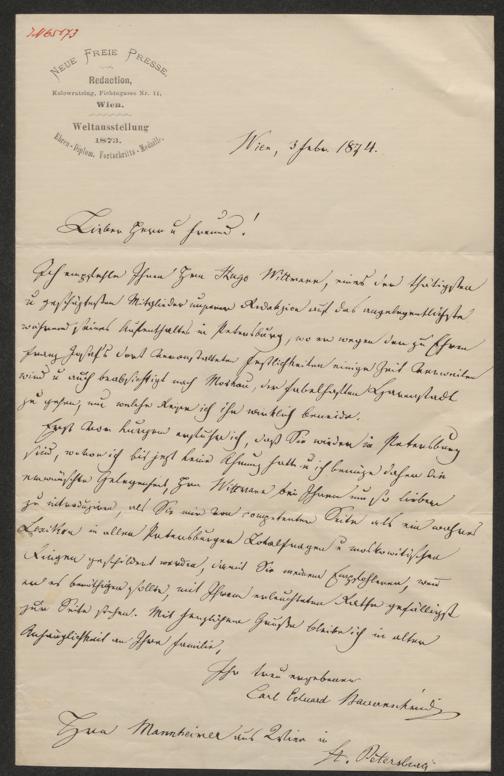 I.N. 65173
NEUE FREIE PRESSE.
Redaction,
Kolowratring, Fichtegasse Nr. 11,
Wien.
Weltausstellung
1873.
Ehren-Diplom. Fortschritts-Medaille.
Wien, 3 Febr. 1874.
Lieber Herr u Freund!
Ich empfehle Ihnen Hrn Hugo Wittmann, eines der thätigsten
u geschätztesten Mitglieder unserer Redaktion auf das angelegentlichste
während seines Aufenthaltes in Petersburg, wo er wegen den zu Ehren
Franz Josefs dort veranstalteten Festlichkeiten einige Zeit verweilen
wird u auch beabsichtigt nach Moskau, der fabelhaften Czarenstadt
zu gehen, um welche Reise ich ihn wirklich beneide.
Erst vor Kurzem erfuhr ich, daß Sie wieder in Petersburg
sind, wovon ich bis jetzt keine Ahnung hatte u ich benütze daher die
erwünschte Gelegenheit, Hrn Wittmann bei Ihnen um so lieber
zu introduziren, als Sie mir von competenter Seite als ein wahres
Lexikon in allen Petersburger Lokalfragen u moskowitischen
Dingen geschildert werden, damit Sie meinem Empfohlenen, wenn
er es benöthigen sollte, mit Ihrem erleuchteten Rathe gefälligst
zur Seite stehen. Mit herzlichem Gruße bleibe ich in alter
Anhänglichkeit an Ihre Familie,
Ihr treu ergebener
Carl Eduard Bauernschmid
Hrn Mannheimer aus Wien in
St. Petersburg